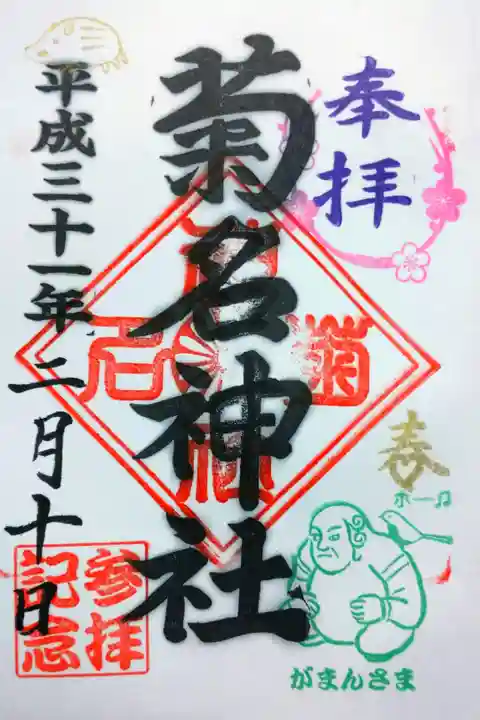 奉拝
菊名神社
平成三十一年二月十日
春
ホー♫
がまんさま
参拝
記念